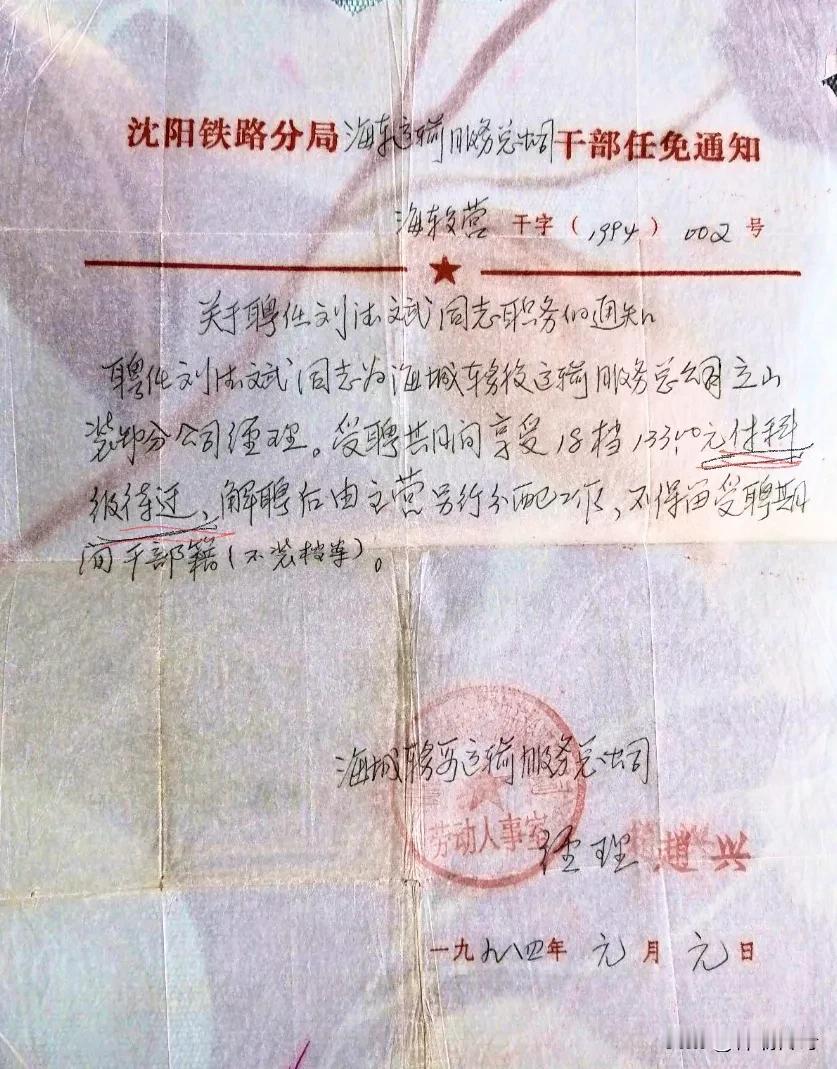 沈阳铁路分局海车运输服务总公司干部任免通知
海车营 干字（1994）002号
关于聘任刘法斌同志职务的通知
聘任刘法斌同志为海城车务段运输服务总公司立山
装卸分公司经理。受聘其间享受18档133.00元付科
级待迂，解聘后由主营另行分配工作，不保留受聘期
间干部籍（不装档案）。
海城车务段运输服务总公司
劳动人事室
经理 赵兴
一九八四年元月元日